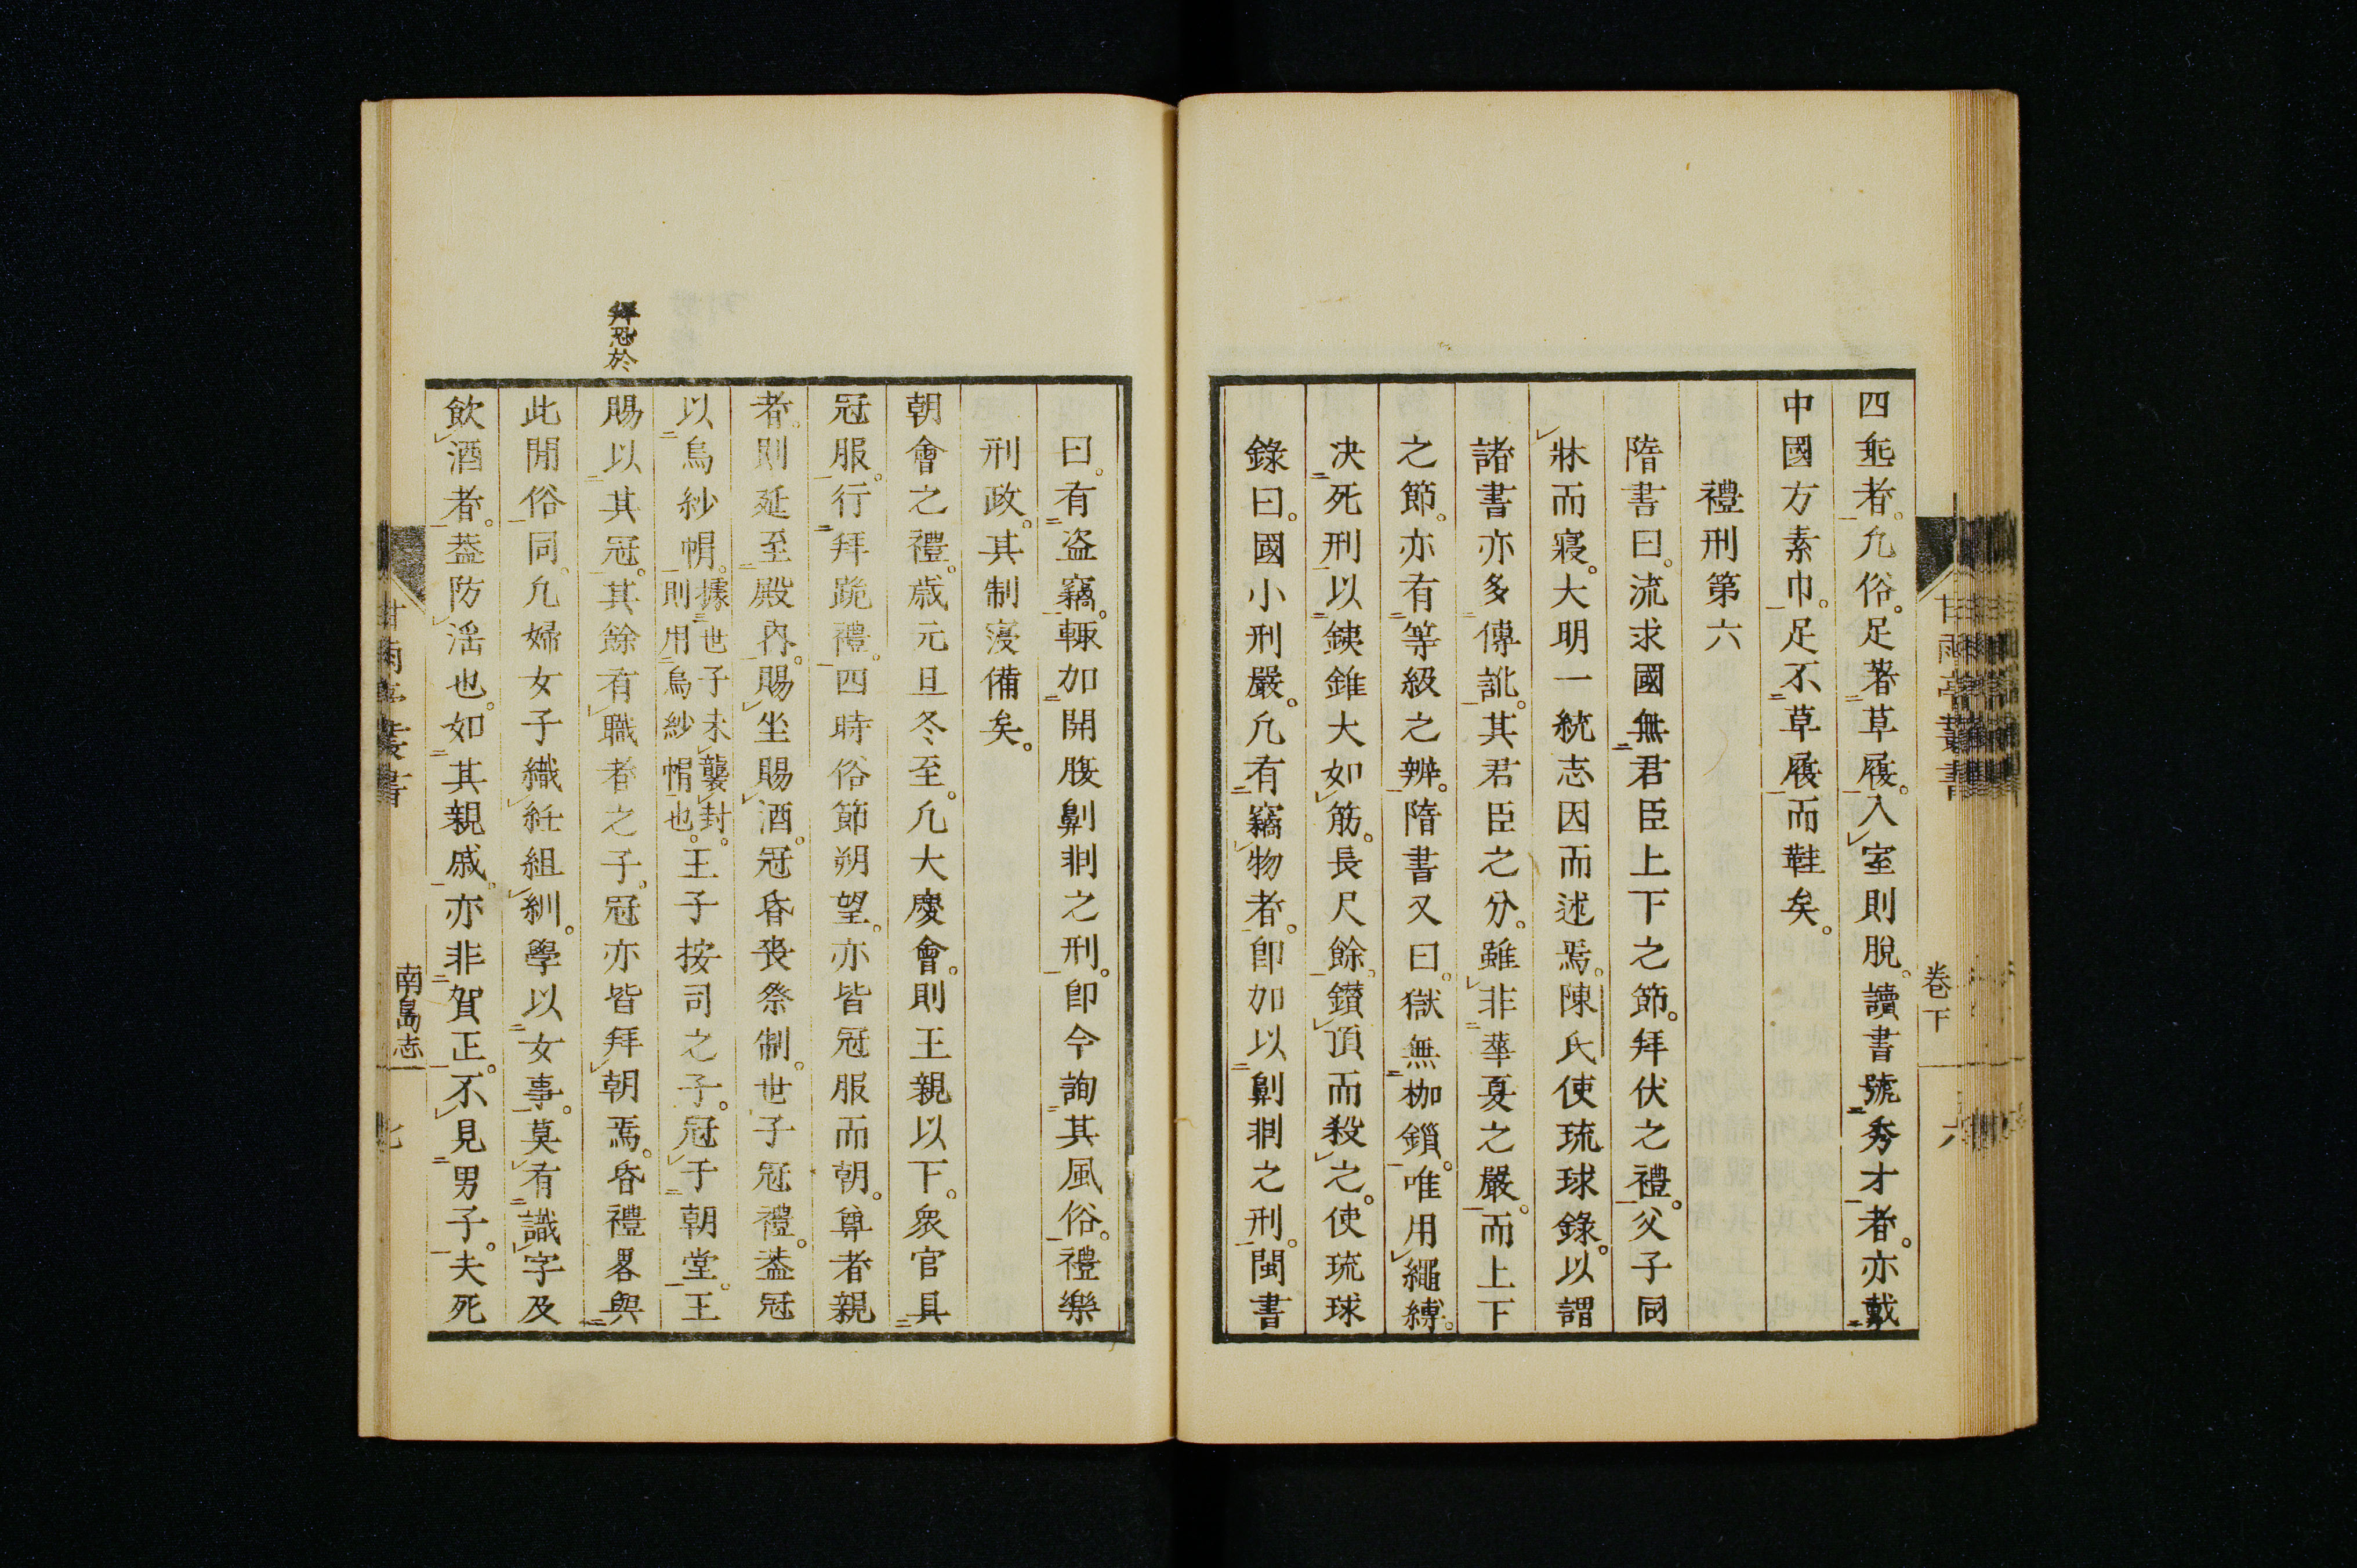 四垂者。凢俗。足著草履。入室則脫。讀書號秀才者。亦戴
中國方素巾。足不草履而鞋矣。
禮刑第六
隋書曰。流求國無君臣上下之節。拜伏之禮。父子同
牀而寢。大明一統志因而述焉。陳氏使琉球錄。以謂
諸書亦多傳訛。其君臣之分。雖非華夏之嚴。而上下
之節。亦有等級之辨。隋書又曰。獄無枷鎖。唯用繩縛。
决死刑以鐵錐大如筋。長尺餘。鑚頂而殺之。使琉球
錄曰。國小刑嚴。凢有竊物者。卽加以劓剕之刑。閩書
卷下
六
甘雨亭叢書
曰。有盜竊。輙加開腹劓剕之刑。卽今詢其風俗。禮樂
刑政。其制寖備矣。
朝會之禮。歲元旦冬至。凢大慶會。則王親以下。衆官具
冠服。行拜跪禮。四時俗節朔望。亦皆冠服而朝。尊者親
者。則延至殿內。賜坐賜酒。冠昏喪祭制。世子冠禮。葢冠
以烏紗帽。據世子未襲封。則用烏紗帽也。王子按司之子。冠于朝堂。王
賜以其冠。其餘有職者之子。冠亦皆拜朝焉。昏禮畧與
此閒俗同。凢婦女子織紝組紃。學以女事。莫有識字及
飲酒者。葢防淫也。如其親戚。亦非賀正。不見男子。夫死
拜恐於
甘雨亭叢書
南島志
七